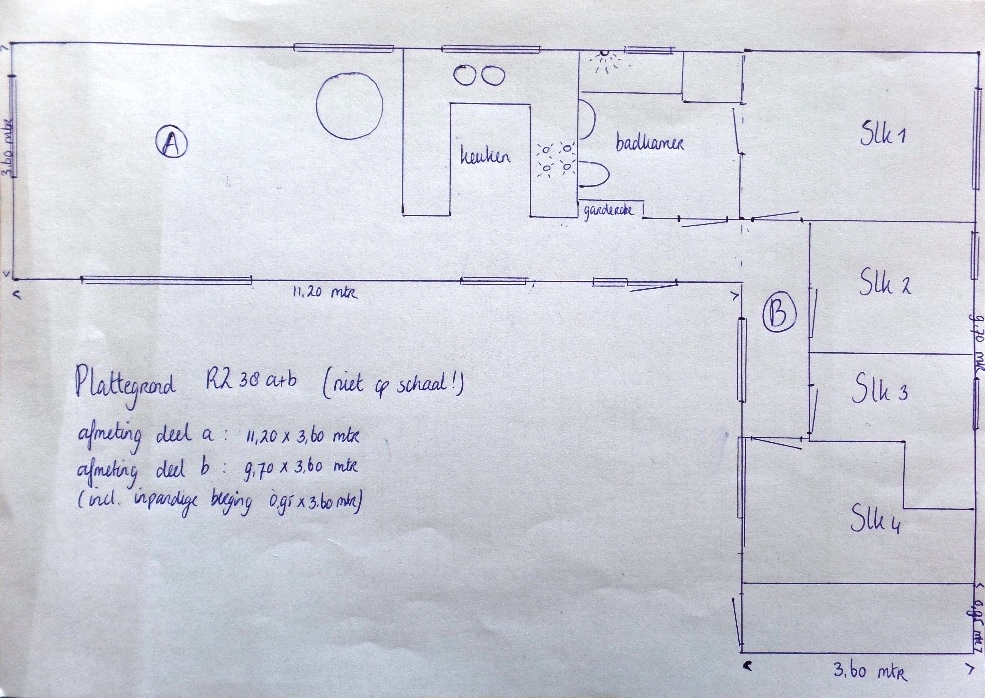 A
3,60 mtr
keuken
badkamer
garderobe
Slk 1
Slk 2
B
9,70 mtr
Slk 3
Slk 4
11,20 mtr
0,95 mtr
3,60 mtr
Plattegrond R2 38 a+b (niet op schaal!)
afmeting deel a : 11,20 x 3,60 mtr
afmeting deel b : 9,70 x 3,60 mtr
(incl. inpandige berging 0,95 x 3.60 mtr)